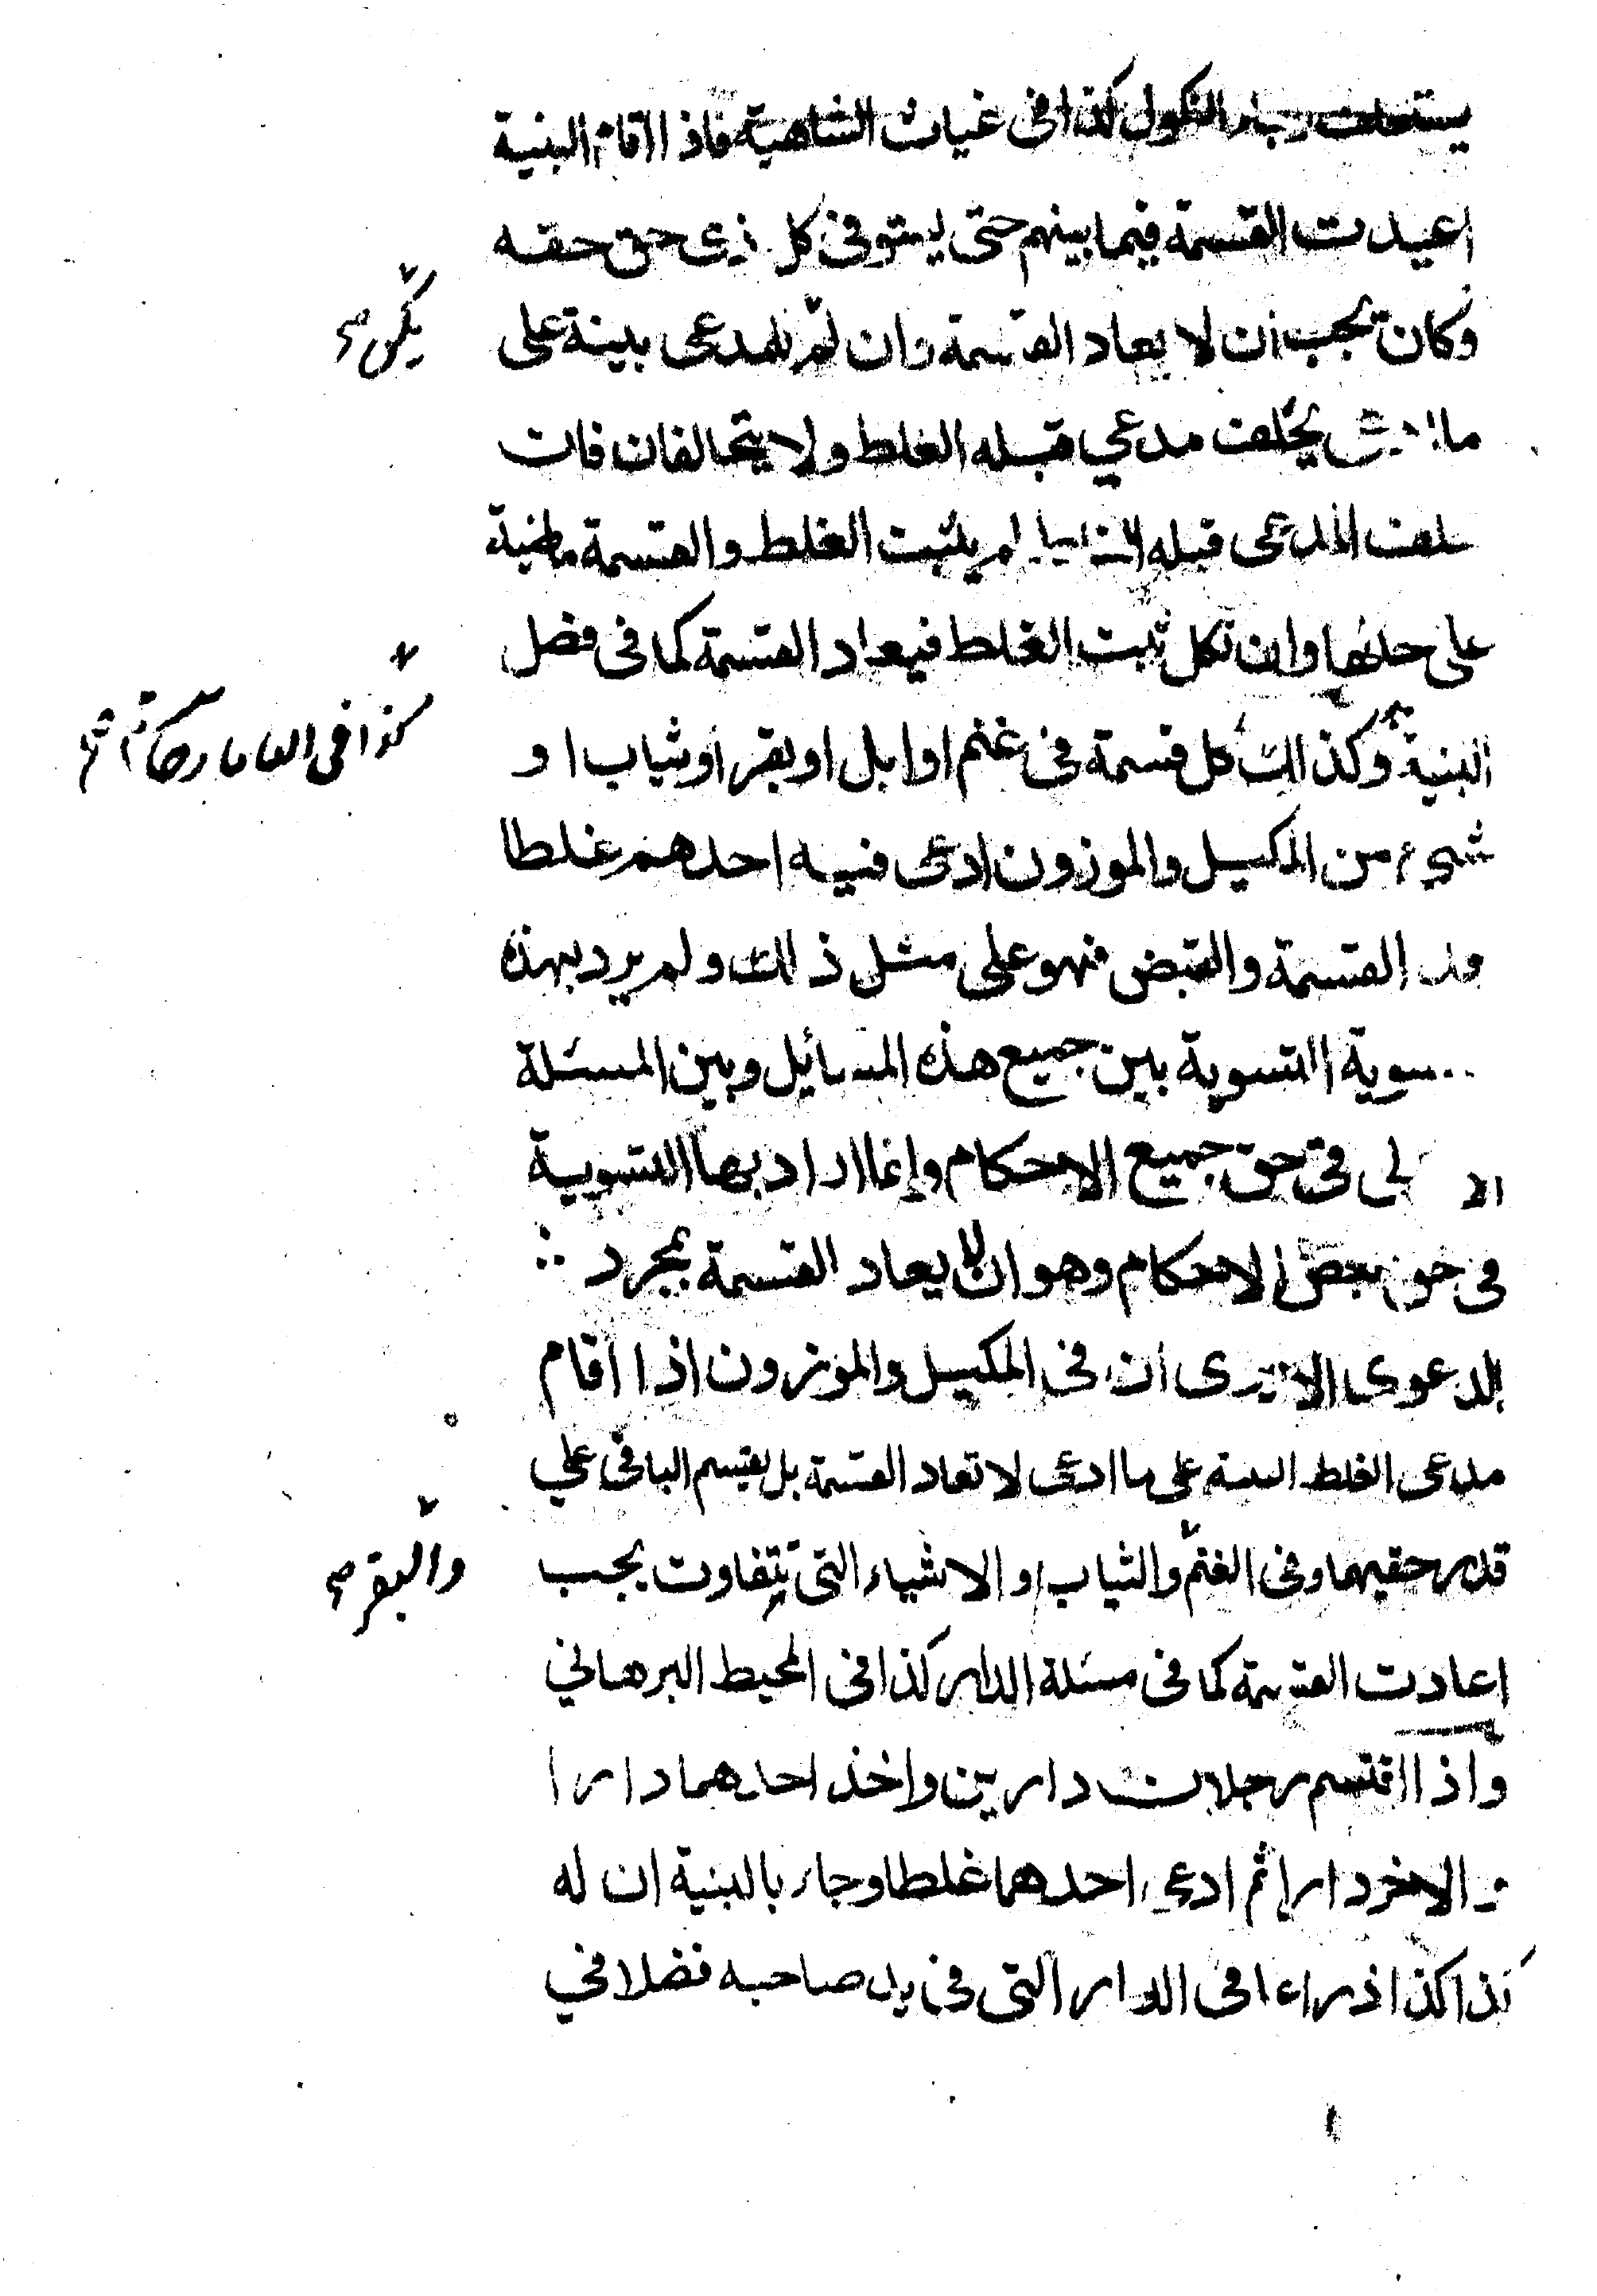 يستحلف رجاء النكول كذا في غياث الشاهية فاذا اقام البنية
اعيدت القسمة فيما بينهم حتى يستوفى كل ذى حق حقه
وكان يجب ان لا يعاد القسمة وان لم للمدعى بينة على
يكن صح
يحلف مدعي قبله الغلط ولا يتحالفان فان
حلف المدعى قبله لم يثبت الغلط والقسمة ماضية
على حالها وان نكل ثبت الغلط فيعاد القسمة كما فى فصل
البنية وكذالك كل قسمة فى غنم او ابل او بقر او ثياب او
كذا فى
شيء من المكيل والموزون ادعى فيه احدهم غلطا
القسمة والقبض فهو على مثل ذالك ولم يرد بهذه
سوية التسوية بين جميع هذه المسائل وبين المسئلة
فى حق جميع الاحكام وإنما اراد بها التسوية
فى حق بعض الاحكام وهو ان لا يعاد القسمة بمجرد
الدعوى الا ترى ان فى المكيل والموزون اذا اقام
مدعى الغلط البينة على ما ادعى لا تعاد القسمة بل يقسم الباقى على
قدر حقيهما وفى الغنم والثياب والاشياء التى تتفاوت يجب
والبقر صح
اعادت القسمة كما فى مسئلة الدار كذا فى المحيط البرهاني
واذا اقتسم رجلان دارين واخذ احدهما دارا
والاخر دارا ثم ادعى احدهما غلطا وجاء بالبنية ان له
كذا كذا ذراعا فى الدار التى فى يد صاحبه فضلا في